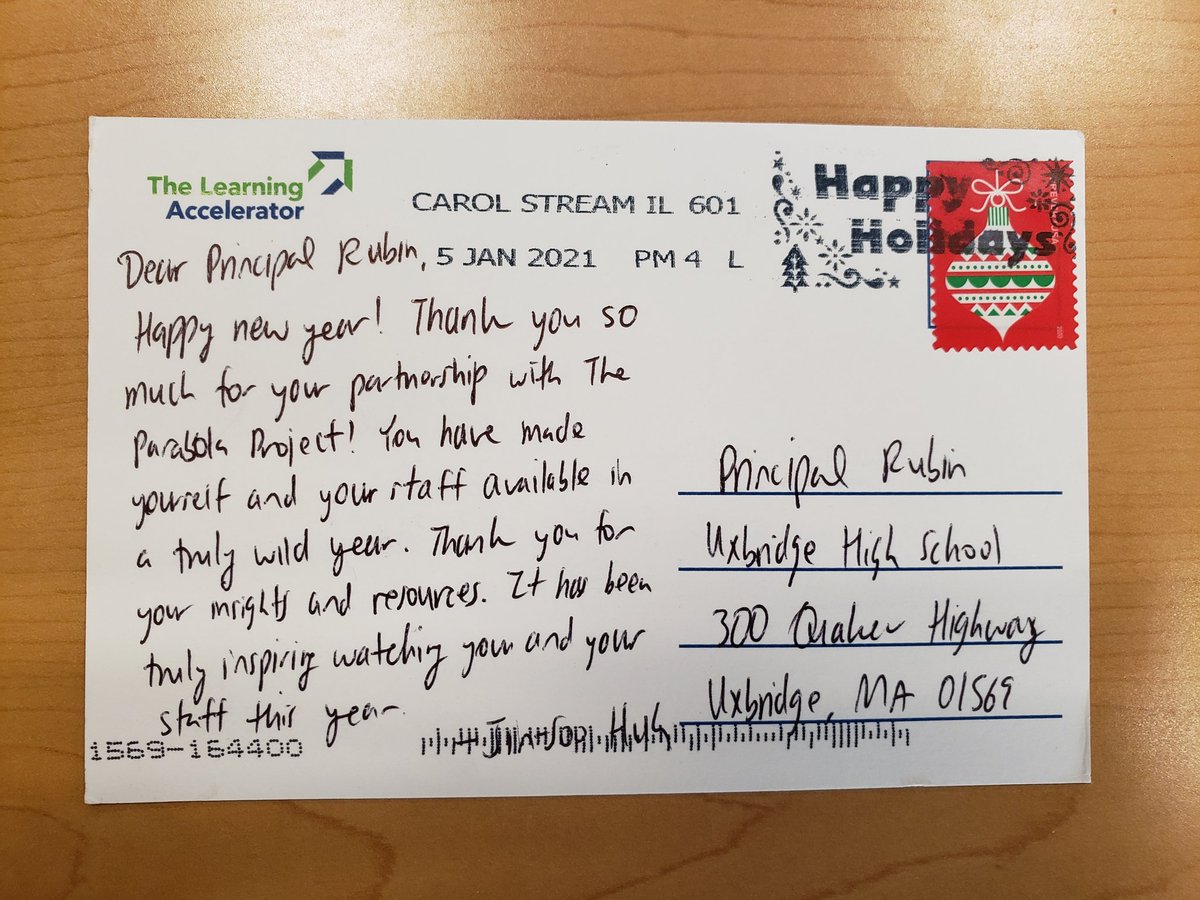 The Learning
Accelerator
CAROL STREAM IL 601
5 JAN 2021 PM 4 L
Happy
Holidays
2020
Dear Principal Rubin,
Happy new year! Thank you so
much for your partnership with The
Parabola Project! You have made
yourself and your staff available in
a truly wild year. Thank you for
your insights and resources. It has been
truly inspiring watching you and your
staff this year.
Principal Rubin
Uxbridge High School
300 Quaker Highway
Uxbridge, MA 01569
1569-164400